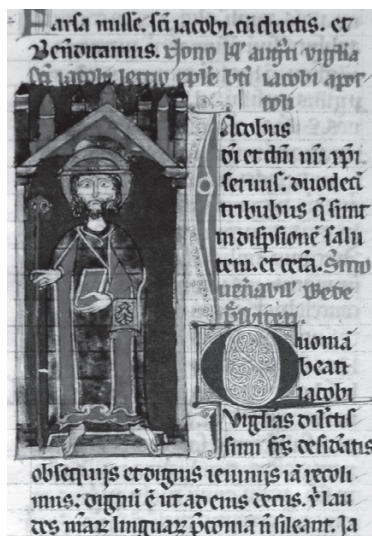 Farsa misse. sc̄i iacobi. cū ductis. et
Bēnedicamus. Nono kl̄ augti vigl̄ia
sc̄i iacobi lectio ep̄le bt̄i iacobi apos
toli
Iacobus
dī et dn̄i nr̄i xp̄i
seruus: duodecī
tribubus q̄ sunt
in disp̄sione salu
tem. et cetā. Sermo
uen̄abil' bede
p̄sbiteri
Quoniā
beati
iacobi
Vigilias dil̄ctis
simi frs̄ desid̄atis
obsequiis et dignis ieiuniis iā recoli
mus: dignū ē ut ad eius decus. lau
des nr̄aꝝ linguaꝝ p̄conia n̄ sileant. Ia